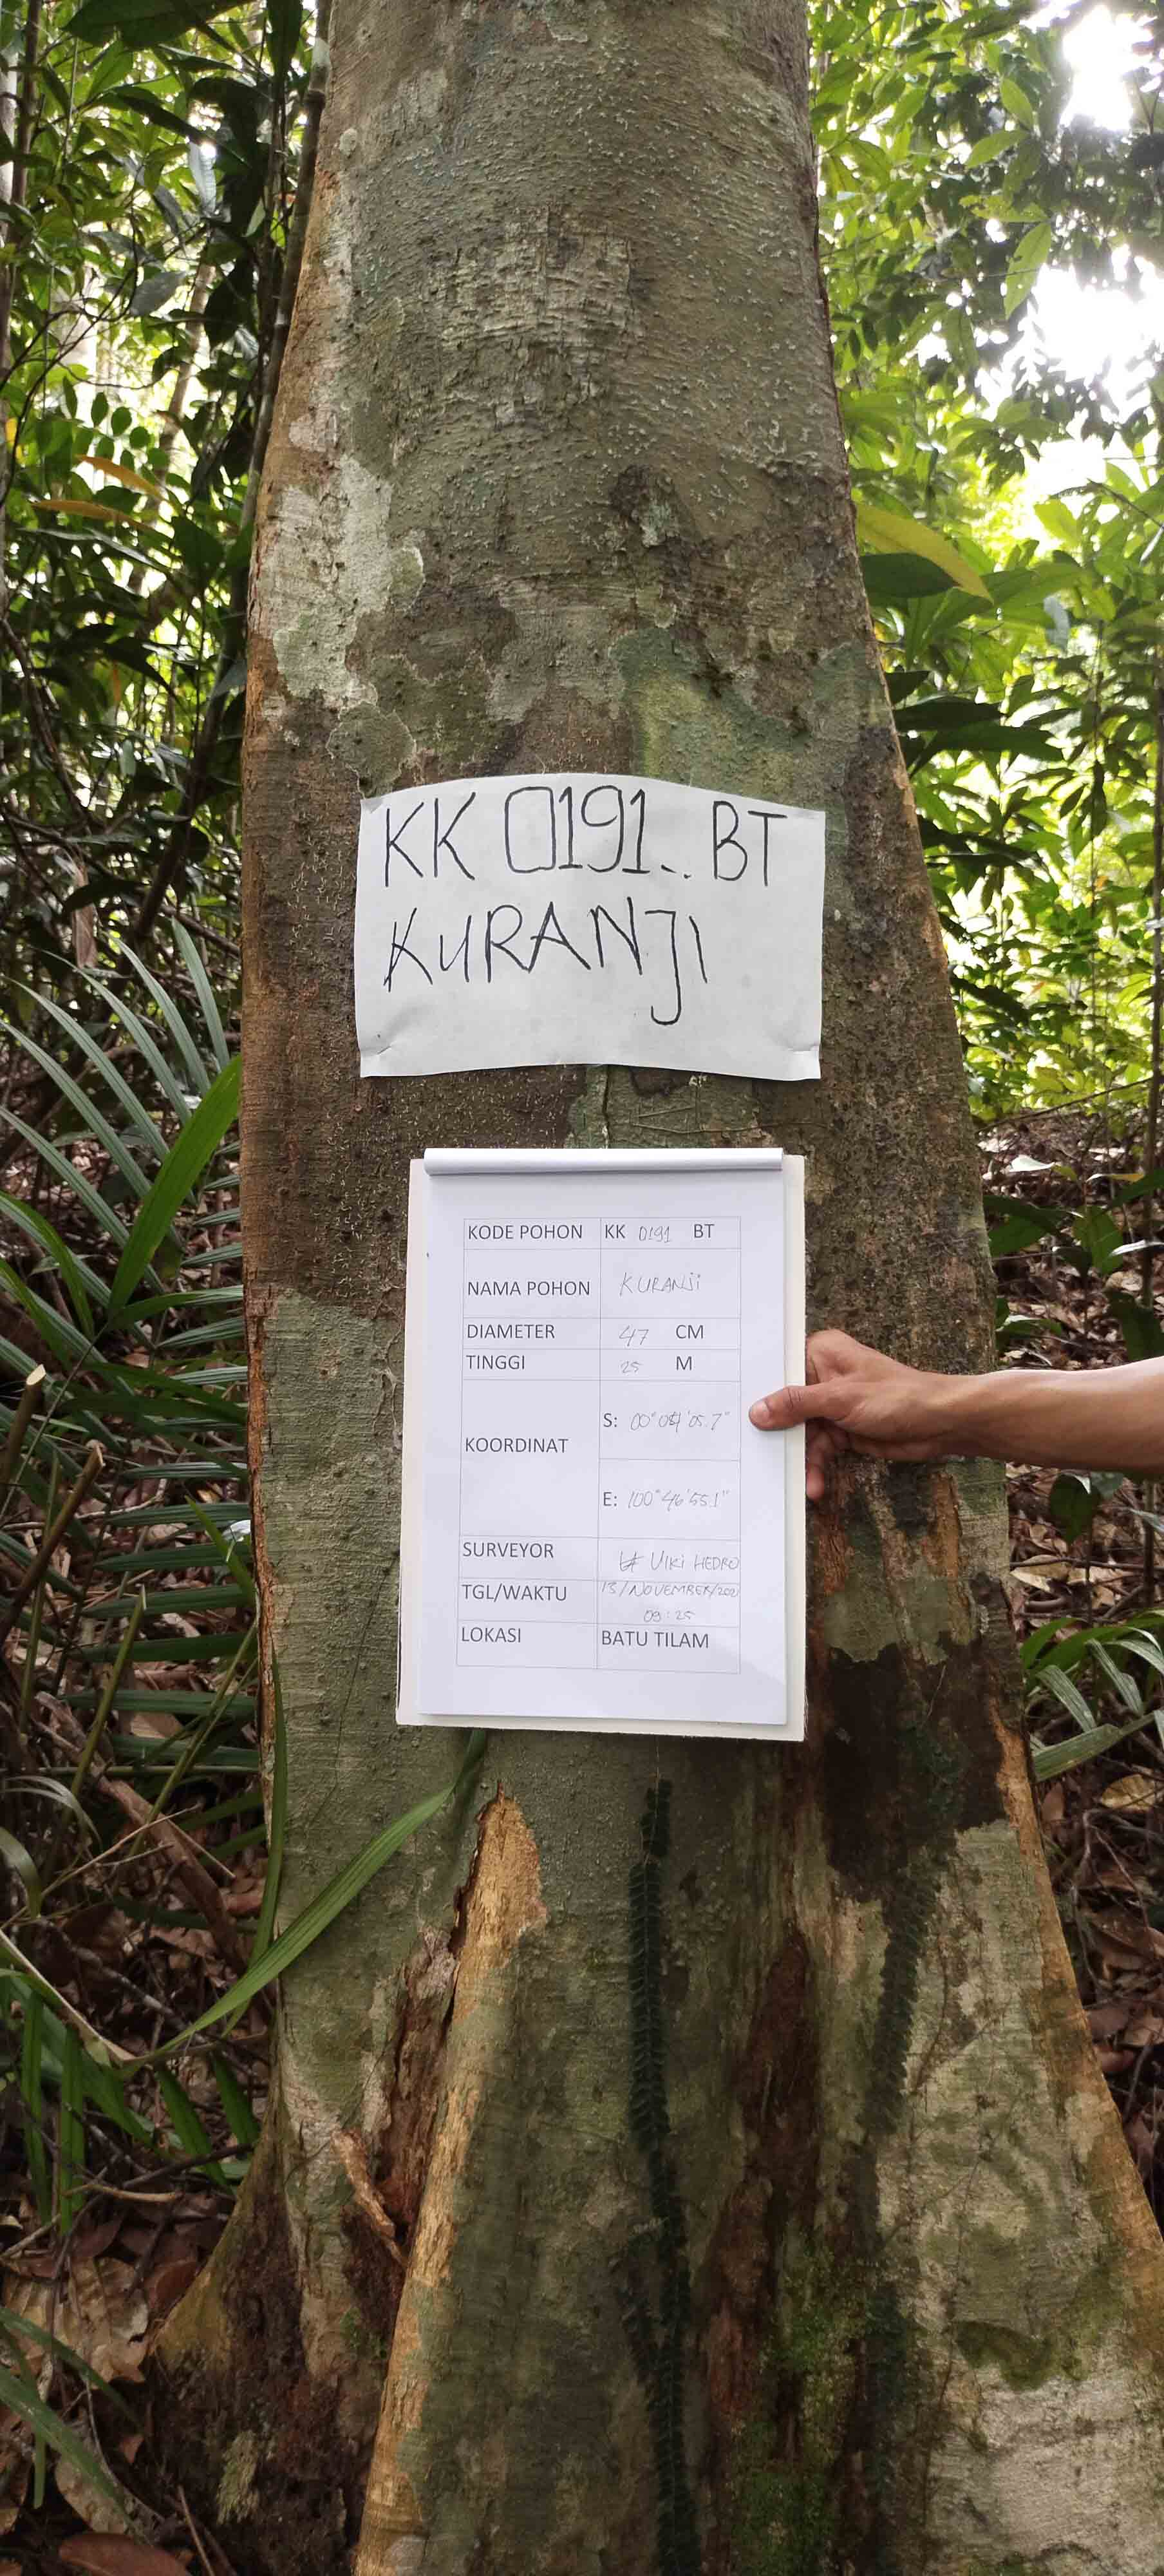 KK 0191.. BT
KURANJI
KODE POHON KK 0191 BT
NAMA POHON KURANJI
DIAMETER 47 CM
TINGGI 25 M
KOORDINAT
S: 00° '05.7"
E: 100°46'55.1"
SURVEYOR VIKI HEDRO
TGL/WAKTU 13/NOVEMBER/202
09:25
LOKASI BATU TILAM